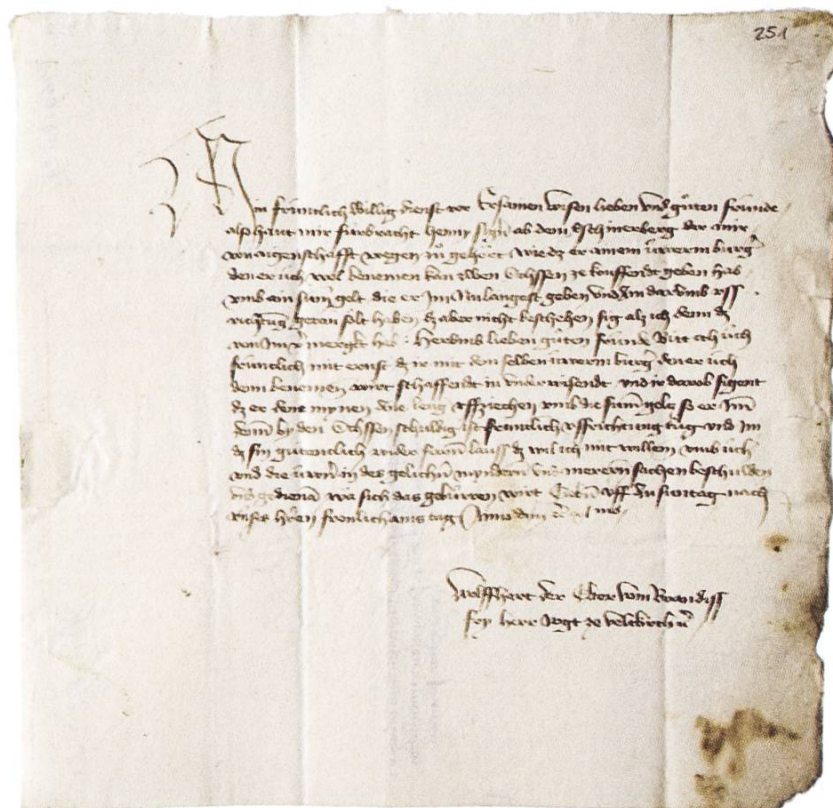 251
Min früntlich willig dienst vor Ersamen wisen lieben vnd gůten fründe
alz haut mir fürbracht Henny ab dem der mir
von aigenschafft wegen zů gehört wie dz er ainem üwerm burg
den er üch wol benemen kan zwen Ochssen ze kouffendt geben hab
vmb ain sum gelt die er Im geben vnd Im darumb vss
getan solt haben dz aber nicht beschehen sig alz ich denn dz
von Im mergkt hab Herumb lieben guten fründe Bitt ich üch
früntlich mit ernst dz ir mit dem selben üwerm burg den er üch
denn benemen wirt schaffendt in vnderwisendt vnd ir darob sigent
dz er dem mynen die leng vffziechen vmb die sum gelt so er Im
von den Ochssen schuldig ist früntlich vssrichtung tüg vnd Im
dz sin gütentlich wider laus dz wil ich mit willen vmb üch
vnd die üwern in des gelichen myndern vnd meren sachen beschulden
vnd gedienen wa sich das gebürren wirt Geben vff suntag nach
vnsers heren fronlichams tag Anno dm
Wolffhart der Elter von Brandiss
fry herr vogt ze veltkirch